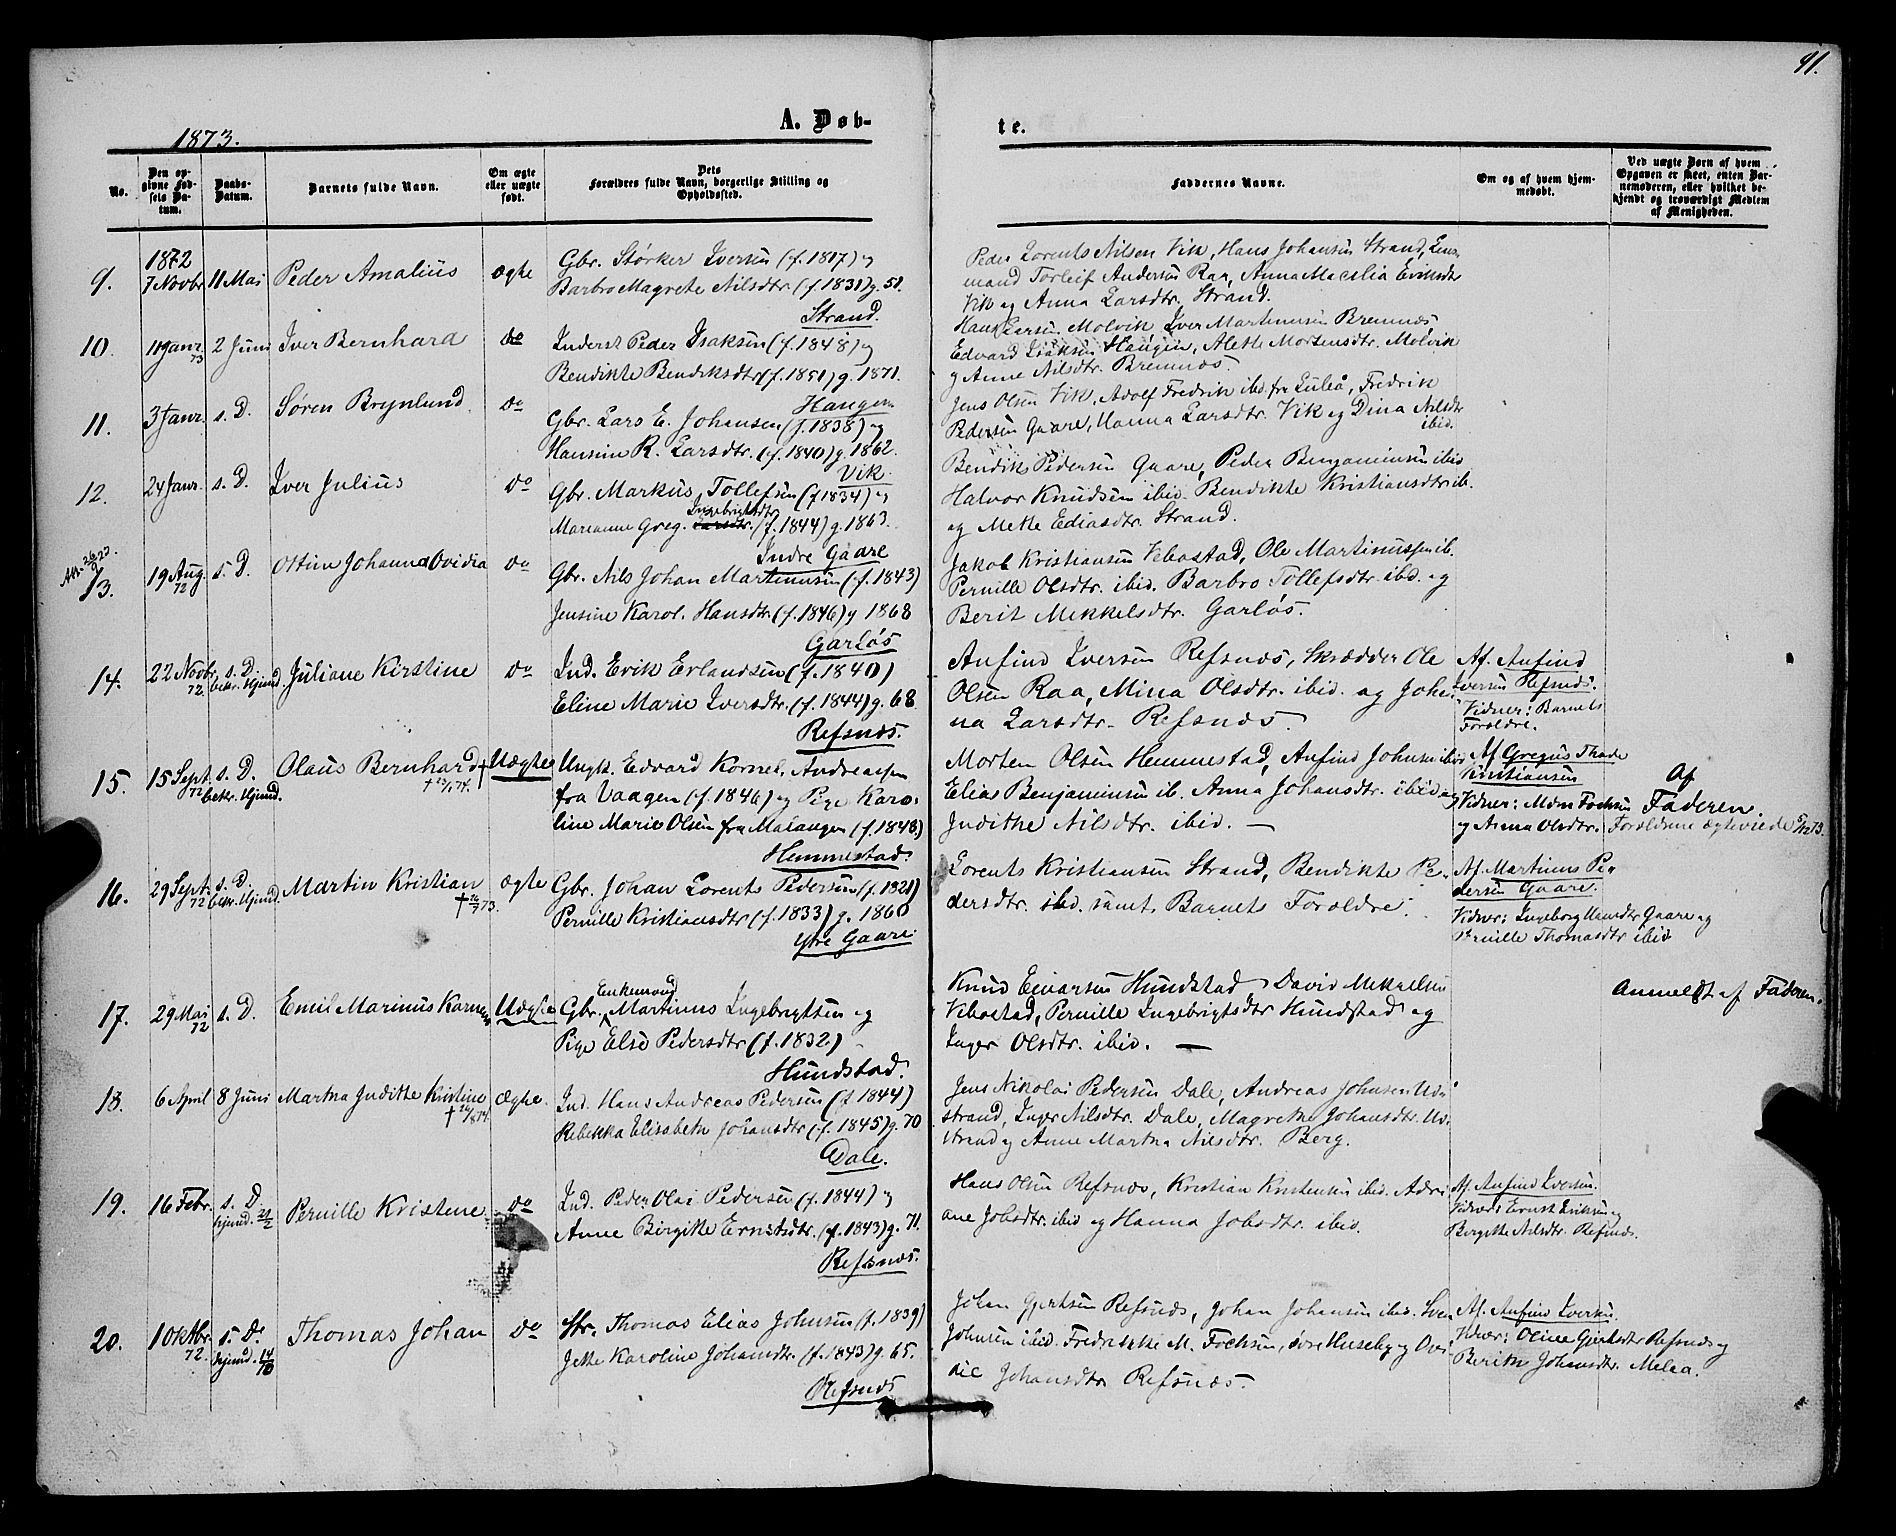 91.
1873.
A. Døb-
te.
No.
Den op-
givne Fød-
sels Da-
tum.
Daabs-
Datum.
Barnets fulde Navn.
Om ægte
eller uægte
født.
Dets
Forældres fulde Navn, borgerlige Stilling og
Opholdssted.
Faddernes Navne.
Om og af hvem hjem-
medøbt.
Ved uægte Børn af hvem
Opgaven er skeet, enten Bar-
nemoderen, eller hvilket be-
kjendt og troværdigt Medlem
af Menigheden.
9.
1872
7 Novbr
11 Mai
Peder Amalius
ægte
Gbr. Størker Iversen (f. 1817) og
Barbro Magrete Nilsdtr. (f. 1831) g. 51.
Strand.
Peder Lorents Nilsen Vik, Hans Johansen Strand, Lens-
mand Torleif Andersen Raa, Anna Macelia Eriksdtr
Vik og Anna Larsdtr. Strand.
10.
11 Janr.
73
2 Juni
Iver Bernhard
do
Inderst Peder Isaksen (f. 1848) og
Bendikte Bendiksdtr (f. 1851) g. 1871.
Haugen
Hans Larsen Molvik, Iver Martinusen Bremnæs,
Edvard Isaksen Haugen, Alette Mortensdtr. Molvik
og Anne Nilsdtr. Bremnæs.
11.
3 Janr.
s. D.
Søren Brynlund
do
Gbr. Lars E. Johansen (f. 1838) og
Hansine R. Larsdtr. (f. 1840) g. 1862.
Vik
Jens Olsen Vik, Adolf Fredrik ibid. fra Luleå, Fredrik
Pedersen Gaare, Hanna Larsdtr. Vik og Dina Nilsdtr
ibid.
12.
24 Janr.
s. D.
Iver Julius
do
Gbr. Markus Tollefsen (f 1834) og
Marianne Greg. Ingebrigtsdtr. (f. 1844) g. 1863.
Indre Gaare
Bendik Pedersen Gaare, Peder Benjaminsen ibid
Halvor Knudsen ibid. Bendikte Kristiansdtr ib.
og Mette Ediasdtr. Strand.
13.
19 Aug.
72
s. D.
Ottine Johanna Ovidia
do
Gbr. Nils Johan Martinusen (f. 1843)
Jensine Karol. Hansdtr. (f. 1846) g 1868
Garløs
Jakob Kristiansen Vebostad, Ole Martinussen ib.
Pernille Olsdtr. ibid. Barbro Tollefsdtr ibd. og
Berit Mekkelsdtr. Garløs.
14.
22 Novbr.
72
s. D.
bekr. Hjemd.
Juliane Kirstine
do
Ind. Erik Erlandsen (f. 1840)
Eline Marie Iversdtr. (f. 1844) g. 68
Refsnæs.
Anfind Iversen Refsnæs, Skrædder Ole
Olsen Raa, Mina Olsdtr. ibid. og Joha-
na Larsdtr. Refsnæs.
Af. Anfind
Iversen Refsnæs.
Vidner: Barnets
Forældre.
15.
15 Sept.
72
s. D.
bekr. Hjemd.
Olaus Bernhard †
Uægte
Ungk. Edvard Kornel. Andreassen
fra Vaagen (f. 1846) og Pige Karo-
line Marie Olsen fra Malangen (f. 1848)
Hemmestad.
Morten Olsen Hemmestad, Anfind Johnsen ibid
Elias Benjaminsen ib. Anna Johansdtr. ibid og
Judithe Nilsdtr. ibid. —
Af Gregus Thade
Kristiansen
Vidner: Mdm Fochsen
og Anna Olsdtr.
Af
Faderen.
Forældrene ægteviede
16.
29 Sept.
72
s. D.
bekr. Hjemd.
Martin Kristian
ægte
Gbr. Johan Lorents Pedersen (f. 1821)
Pernille Kristiansdtr (f. 1833) g. 1860
Ytre Gaare.
Lorents Kristiansen Strand, Bendikte Pe-
dersdtr. ibd. samt Barnets Forældre.
Af. Martinus Pe-
dersen Gaare.
Vidner: Ingeborg Gaare og
Pernille Thomasdtr ibid
17.
29 Mai
72
s. D.
Emil Marinus
Uægte
Enkemand
Gbr. Martinus Ingebrigtsen og
Pige Else Pedersdtr (f. 1832)
Hundstad.
Knud Einarsen Hundstad David Mekkelsen
Vebostad, Pernille Ingebrigtsdtr Hundstad og
Inger Olsdtr. ibid. —
Anmeldt af Faderen.
18.
6 April
8 Juni
Martha Judithe Kristine
ægte.
Ind. Hans Andreas Pedersen (f 1844)
Rebekka Elisabeth Johansdtr (f. 1845) g. 70
Dale.
Jens Nikolai Pedersen Dale, Andreas Johnsen Ud-
strand, Inger Nilsdtr. Dale, Magrete Johansdtr. Ud-
strand og Anne Martha Nilsdtr. Berg.
19.
16 Febr.
s. D.
hjemd. 21/2
Pernille Kristene
do
Ind. Peder Olai Pedersen (f. 1844) og
Anne Birgitte Ernstsdtr. (f. 1843) g. 71.
Refsnæs.
Hans Olsen Refsnæs, Kristian Kristensen ibid. Adri-
ane Jobsdtr. ibid og Hanna Jobsdtr. ibid.
Af. Anfind Iversen.
Vidner: Ernst Eriksen og
Birgitte Nilsdtr. Refsnæs.
20.
1 Oktbr.
72.
s. D.
hjemd. 14/10
Thomas Johan
do
Str. Thomas Elias Johnsen (f. 1839)
Jette Karoline Johansdtr. (f. 1843) g. 65.
Refsnæs
Johan Gjertsen Refsnæs, Johan Johansen ibid. Sven
Johnsen ibid. Fredrikke M. Fochsen, Huseby og Ovi-
die Johansdtr Refsnæs.
Af. Anfind Iversen
Vidner: Oline Gjertsdtr Refsnæs og
Berith Johansdtr. Melaa.